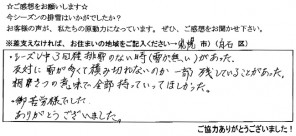 ☆ご感想をお願いします☆
今シーズンの排雪はいかがでしたか？
お客様の声が、私たちの原動力になっています。ぜひ、ご感想をお聞かせ下さい。
※差支えなければ、お住まいの地域をご記入ください→ 札幌 市）（白石 区）
・シーズン中3回程排雪のない時（雪が無い）があった。
反対に雪が多くて積み切れないのか一部残していることがあった。
の意味で全部持っていってほしかった。
・御苦労様でした
ありがとうございました。
ご協力ありがとうございました！